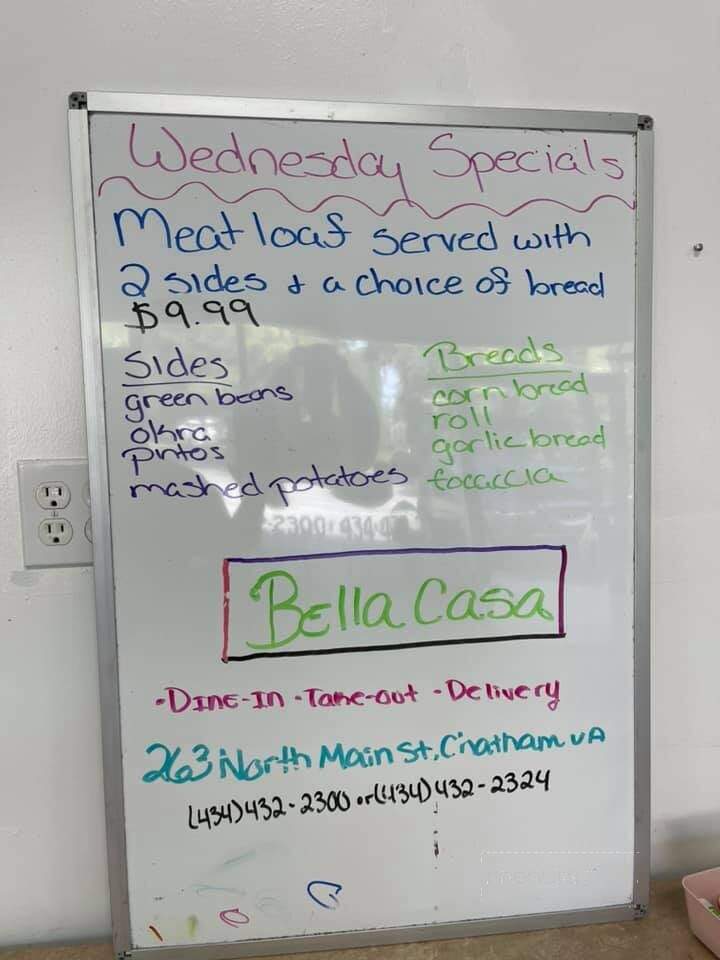 Wednesday Specials
Meatloaf served with
2 sides & a choice of bread
$9.99
Sides
green beans
okra
pintos
mashed potatoes
Breads
corn bread
roll
garlic bread
focaccia
Bella Casa
-Dine-In -Take-out -Delivery
263 North Main St, Chatham VA
(434)432-2300 or (434)432-2324
2300 434-4